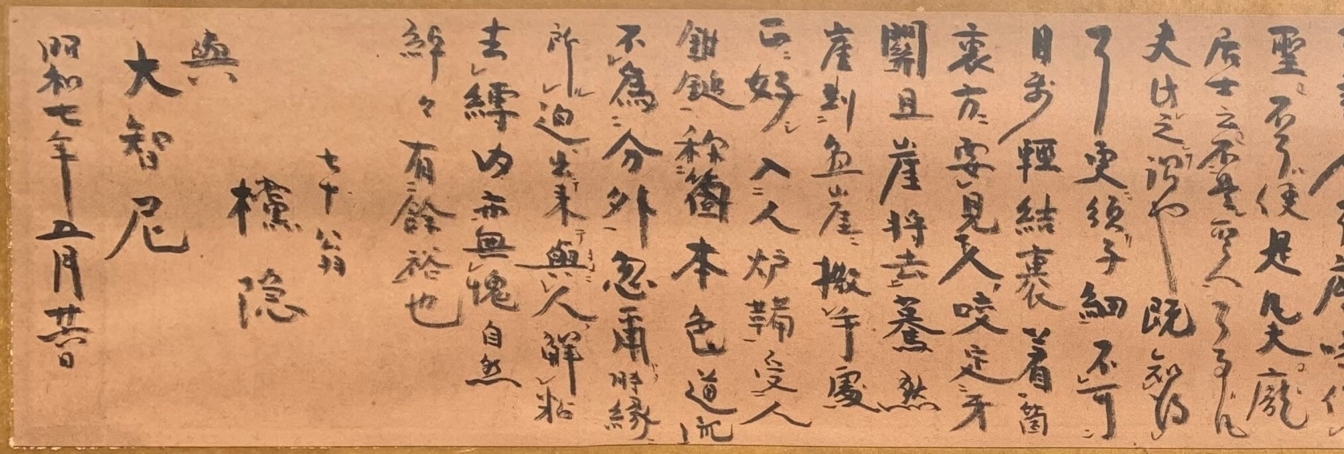 聖不了便是凡夫龐
居士云不是聖人了事凡
夫此之謂也既知得
了更須子細不可
輕結裹著箇
裏方要見人咬定牙
關且崖將去驀然
崖到無崖撒手處
正好入人炉韛受人
鉗鎚称箇本色道流
不為分外忽爾時縁
所迫出来與人解粘
去縛内亦無愧自然
綽々有餘裕也
七十翁
欓隠
與
大智尼
昭和七年五月